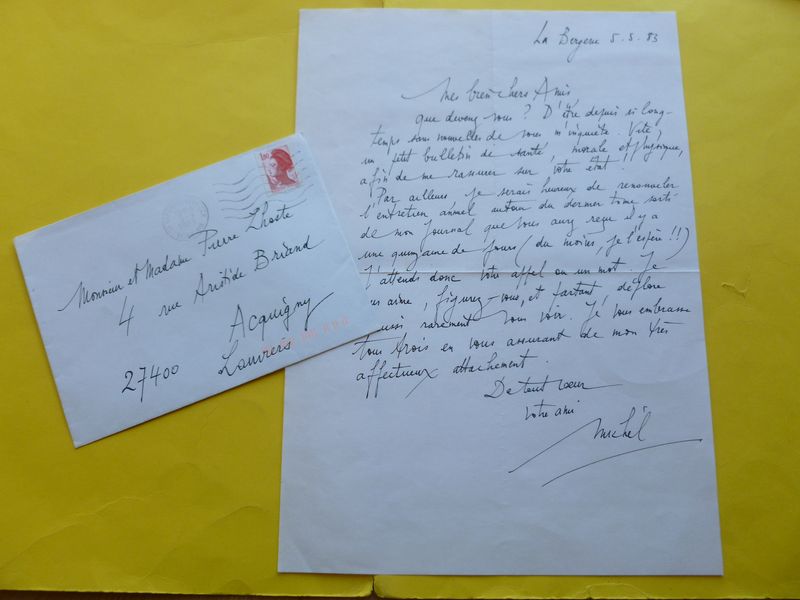 La Bergerie 5.5.83
Mes bien chers Amis
que devenez vous ? D'être depuis si long-
temps sans nouvelles de vous m'inquiète. Vite,
un petit bulletin de santé, morale et physique,
afin de me rassurer sur votre état !
Par ailleurs je serais heureux de renouveler
l'entretien annuel autour du dernier tome sorti
de mon Journal que vous avez reçu il y a
une quinzaine de jours (du moins, je l'espère !!)
J'attends donc votre appel ou un mot. Je
aime, figurez-vous, et partant, déplore
si rarement vous voir. Je vous embrasse
tous trois en vous assurant de mon très
affectueux attachement.
De tout cœur
Votre ami
Michel
1,80
Monsieur et Madame Pierre Lhoste
4 rue Aristide Briand
Acquigny
27400 Louviers